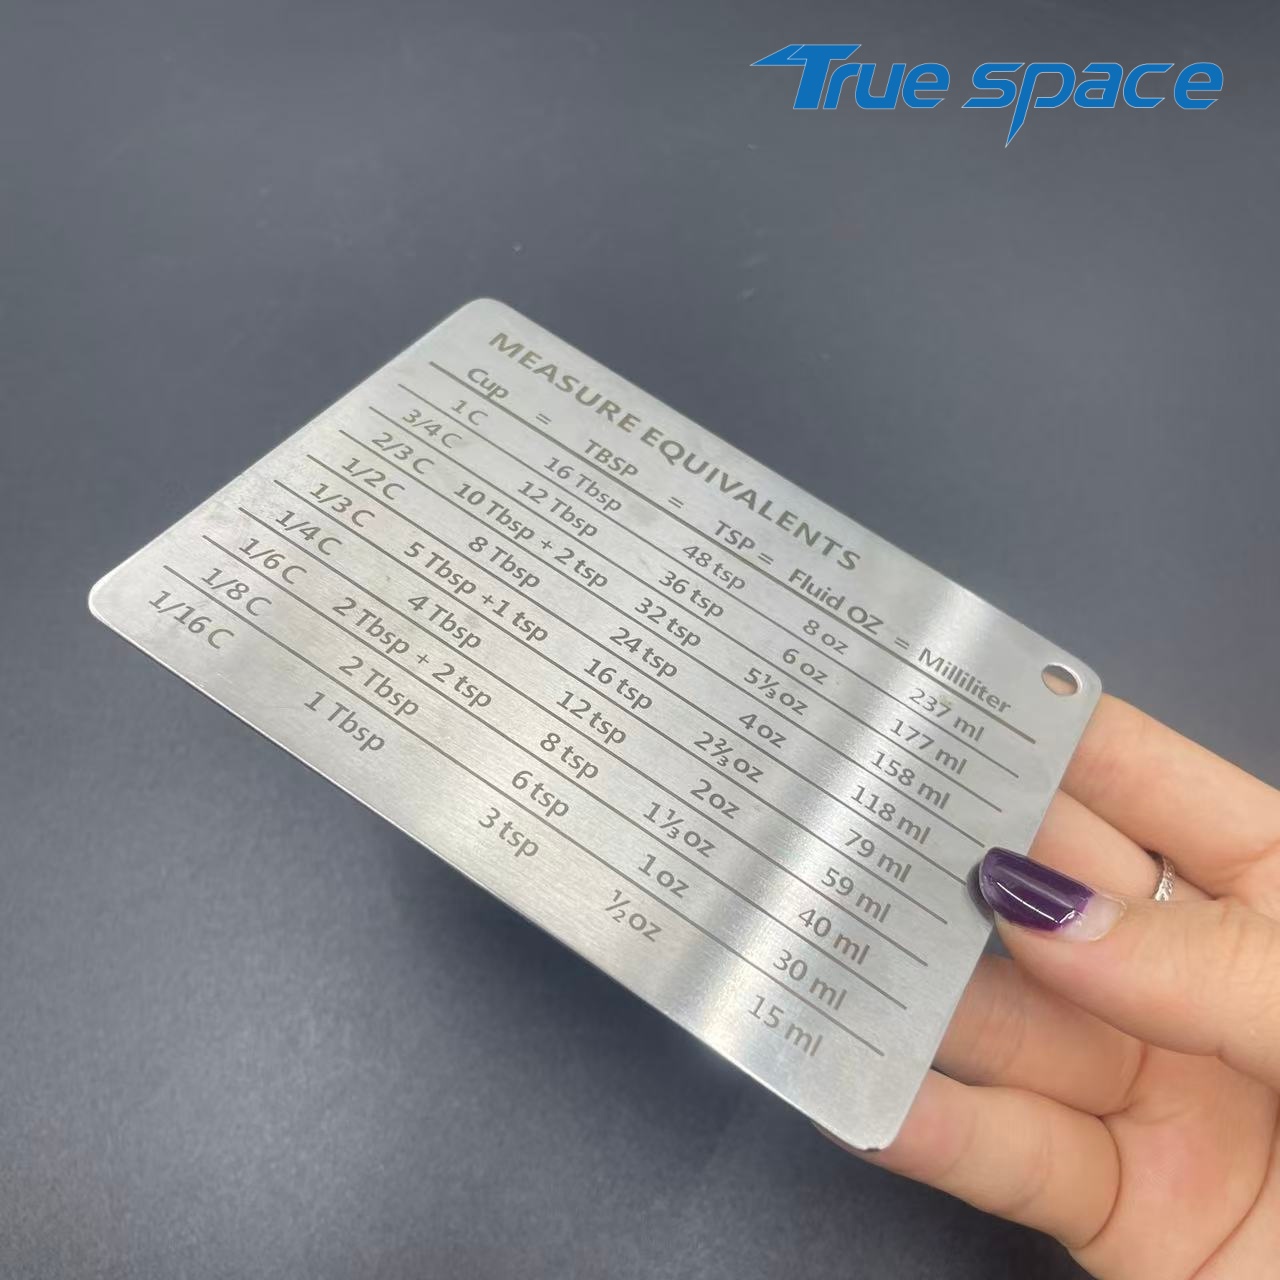 True space
MEASURE EQUIVALENTS
Cup = TBSP = TSP = Fluid OZ = Milliliter
1 C 16 Tbsp 48 tsp 8 oz 237 ml
3/4 C 12 Tbsp 36 tsp 6 oz 177 ml
2/3 C 10 Tbsp + 2 tsp 32 tsp 5⅓ oz 158 ml
1/2 C 8 Tbsp 24 tsp 4 oz 118 ml
1/3 C 5 Tbsp +1 tsp 16 tsp 2⅔ oz 79 ml
1/4 C 4 Tbsp 12 tsp 2 oz 59 ml
1/6 C 2 Tbsp + 2 tsp 8 tsp 1⅓ oz 40 ml
1/8 C 2 Tbsp 6 tsp 1 oz 30 ml
1/16 C 1 Tbsp 3 tsp ½ oz 15 ml